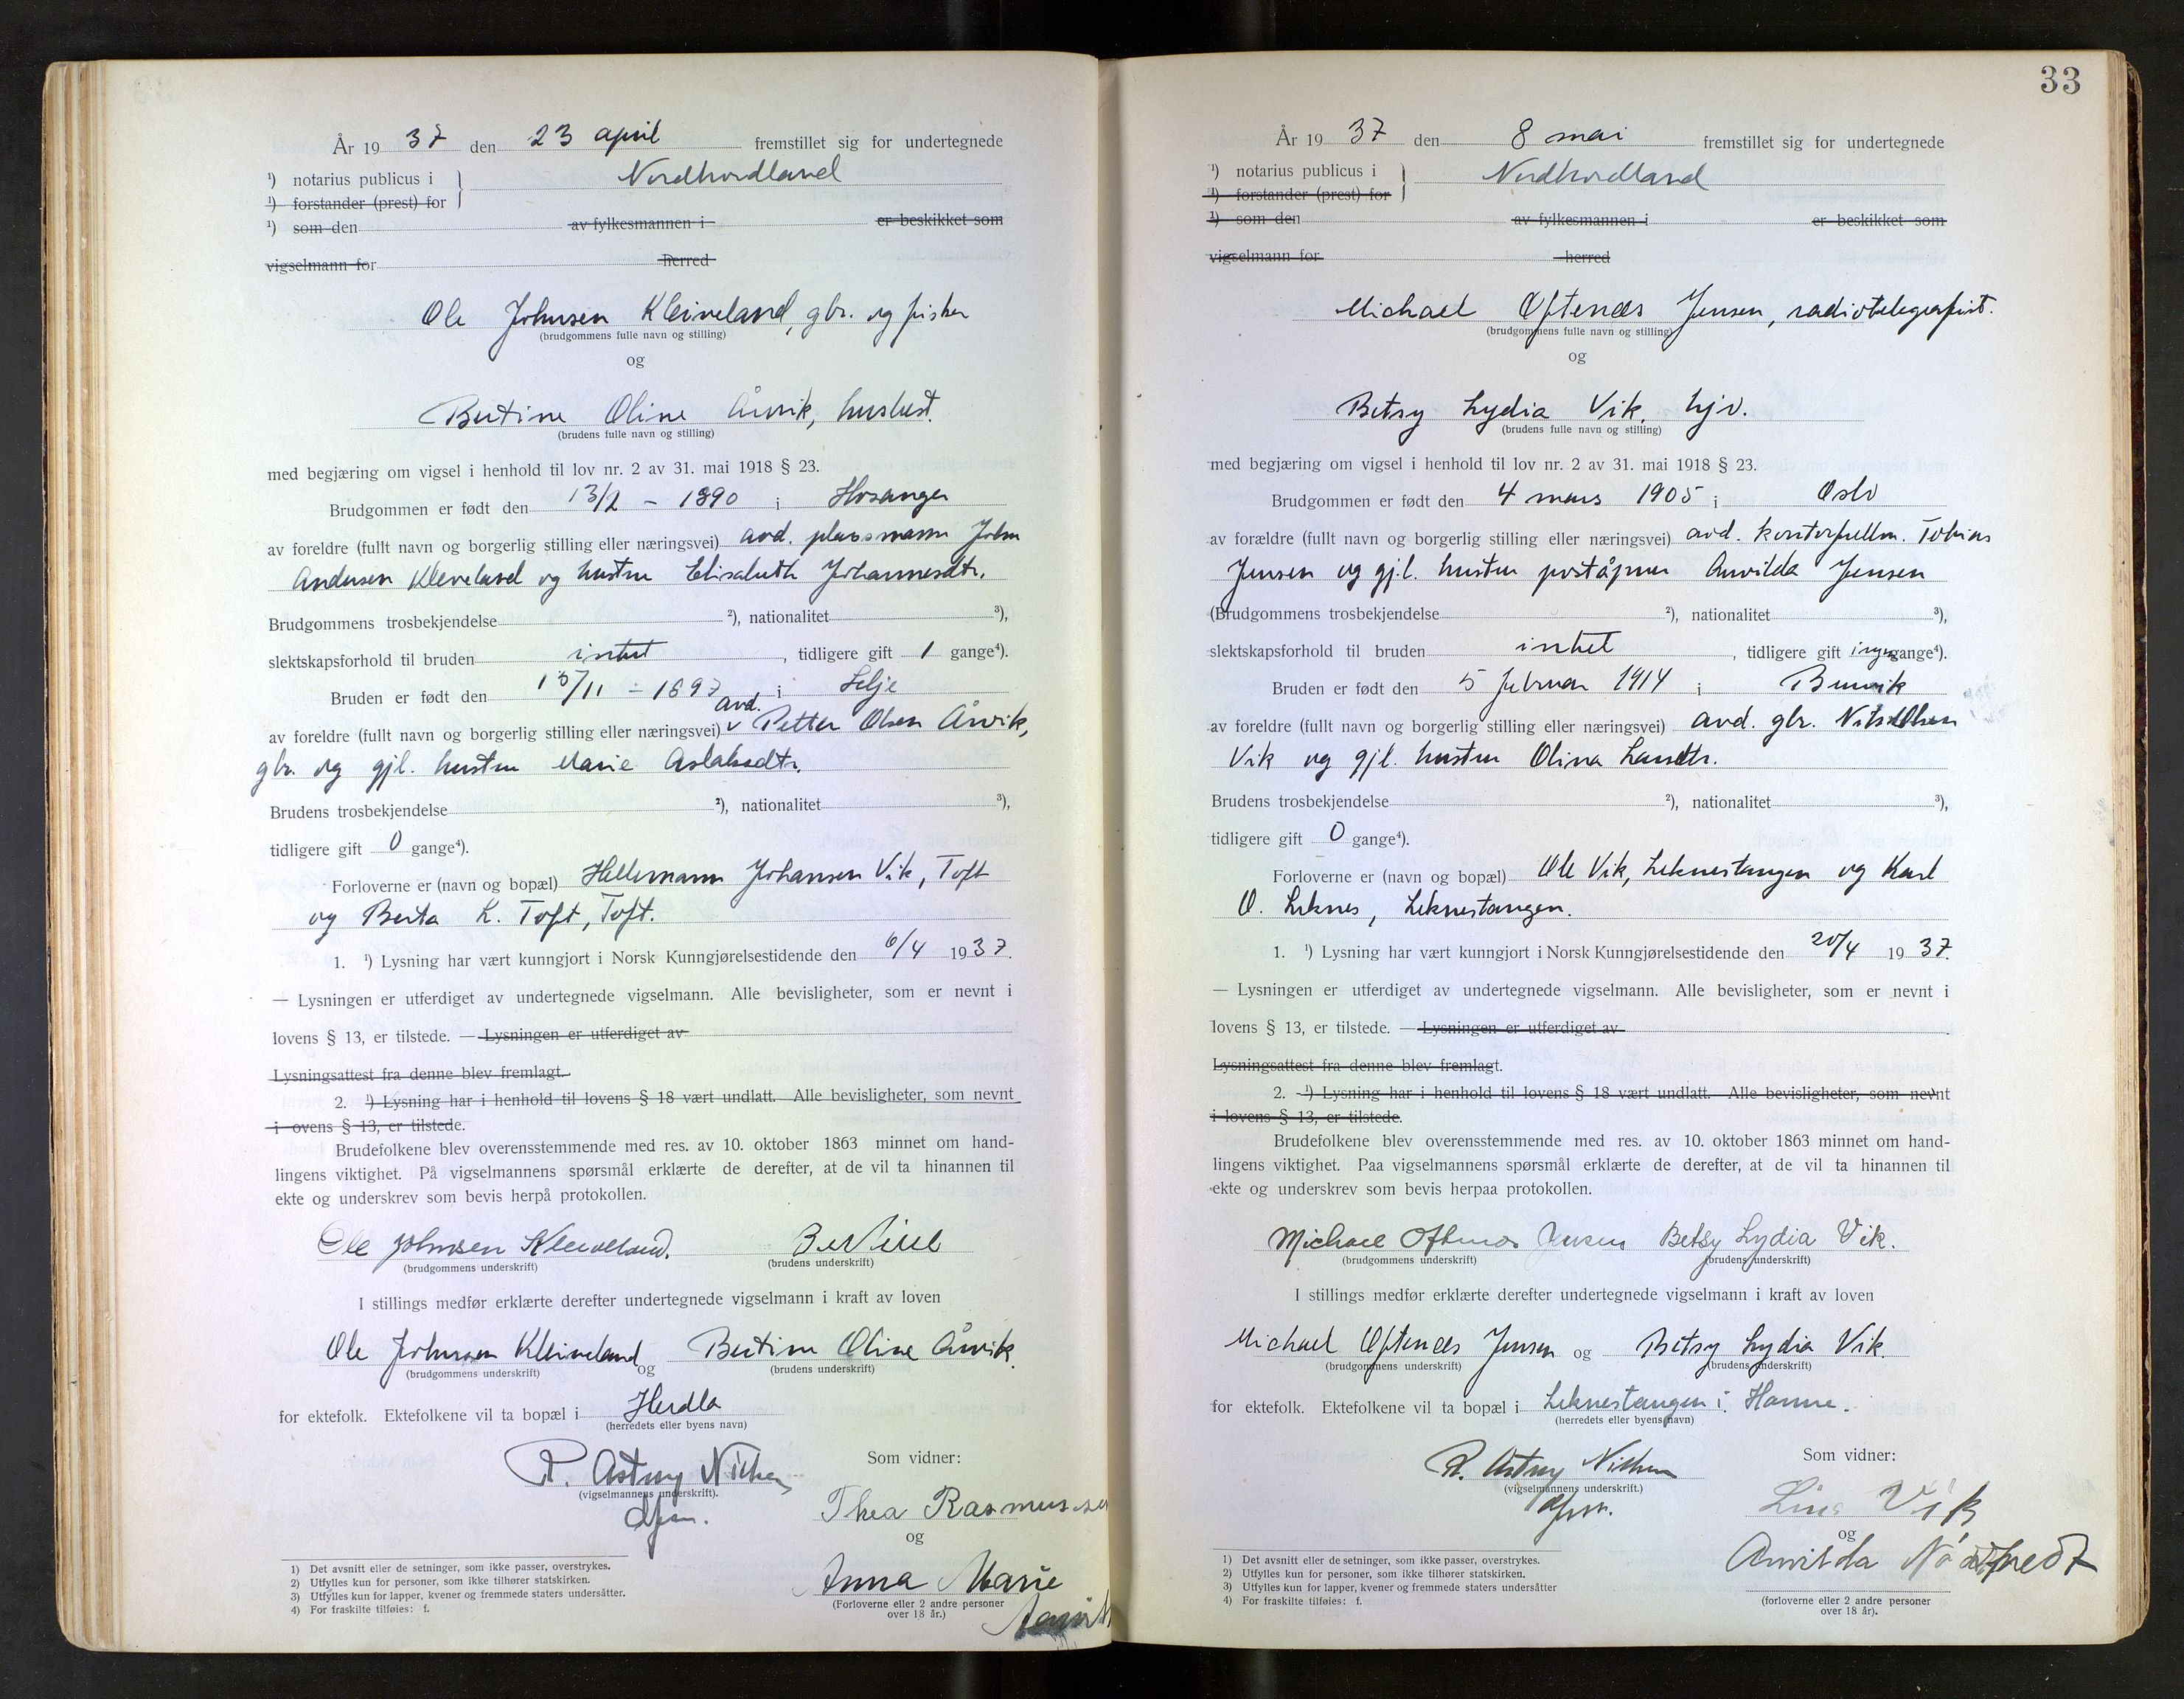 År 1937 den 23 april fremstillet sig for undertegnede
¹) notarius publicus i } Nordhordland
¹) forstander (prest) for
¹) som den av fylkesmannen i er beskikket som
vigselmann for herred
Ole Johnsen Kleiveland, gbr. og fisker
(brudgommens fulle navn og stilling)
og
Bertine Oline Årvik, husbest.
(brudens fulle navn og stilling)
med begjæring om vigsel i henhold til lov nr. 2 av 31. mai 1918 § 23.
Brudgommen er født den 13/2 - 1890 i Hosanger
av foreldre (fullt navn og borgerlig stilling eller næringsvei) avd. plassmann John
Andersen Kleveland og hustru Elisabeth Johannesdtr.
Brudgommens trosbekjendelse ²), nationalitet ³),
slektskapsforhold til bruden intet, tidligere gift 1 gange⁴).
Bruden er født den /11 - 1897 i Selje
av foreldre (fullt navn og borgerlig stilling eller næringsvei) avd. Petter Olsen Årvik,
gbr. og gjl. hustru Marie Aslaksdtr.
Brudens trosbekjendelse ²), nationalitet ³),
tidligere gift 0 gange⁴).
Forloverne er (navn og bopæl) Johansen Vik, Toft
og Berta L. Toft, Toft.
1. ¹) Lysning har vært kunngjort i Norsk Kunngjørelsestidende den 6/4 1937.
— Lysningen er utferdiget av undertegnede vigselmann. Alle bevisligheter, som er nevnt i
lovens § 13, er tilstede. — Lysningen er utferdiget av
Lysningsattest fra denne blev fremlagt.
2. ¹) Lysning har i henhold til lovens § 18 vært undlatt. Alle bevisligheter, som nevnt
i ovens § 13, er tilstede.
Brudefolkene blev overensstemmende med res. av 10. oktober 1863 minnet om hand-
lingens viktighet. På vigselmannens spørsmål erklærte de derefter, at de vil ta hinannen til
ekte og underskrev som bevis herpå protokollen.
Ole Johnsen Kleiveland.
(brudgommens underskrift) (brudens underskrift)
I stillings medfør erklærte derefter undertegnede vigselmann i kraft av loven
Ole Johnsen Kleiveland og Bertine Oline Årvik.
(brudgommens underskrift) (brudens underskrift)
for ektefolk. Ektefolkene vil ta bopæl i Herdla
(herredets eller byens navn)
R. Astrup Nilsen Som vidner:
(vigselmannens underskrift).
dfm. Thea Rasmussen
og
Anna Marie
(Forloverne eller 2 andre personer
over 18 år.)
1) Det avsnitt eller de setninger, som ikke passer, overstrykes.
2) Utfylles kun for personer, som ikke tilhører statskirken.
3) Utfylles kun for lapper, kvener og fremmede staters undersåtter.
4) For fraskilte tilføies: f.
33
År 1937 den 8 mai fremstillet sig for undertegnede
¹) notarius publicus i } Nordhordland
¹) forstander (prest) for
¹) som den av fylkesmannen i er beskikket som
vigselmann for herred
Michael Oftenæs Jensen, radiotelegrafist.
(brudgommens fulle navn og stilling)
og
Betsy Lydia Vik, hjv.
(brudens fulle navn og stilling)
med begjæring om vigsel i henhold til lov nr. 2 av 31. mai 1918 § 23.
Brudgommen er født den 4 mars 1905 i Oslo
av forældre (fullt navn og borgerlig stilling eller næringsvei) avd. kontorfullm. Tobias
Jensen og gjl. hustru poståpner Anvilda Jensen
(Brudgommens trosbekjendelse ²), nationalitet ³),
slektskapsforhold til bruden intet, tidligere gift ingen gange⁴).
Bruden er født den 5 februar 1914 i
av foreldre (fullt navn og borgerlig stilling eller næringsvei) avd. gbr. Nils Olsen
Vik og gjl. hustru Olina Larsdtr.
Brudens trosbekjendelse ²), nationalitet ³),
tidligere gift 0 gange⁴).
Forloverne er (navn og bopæl) Ole Vik, Leknestangen og Karl
O. Leknes, Leknestangen.
1. ¹) Lysning har vært kunngjort i Norsk Kunngjørelsestidende den 20/4 1937.
— Lysningen er utferdiget av undertegnede vigselmann. Alle bevisligheter, som er nevnt i
lovens § 13, er tilstede. — Lysningen er utferdiget av
Lysningsattest fra denne blev fremlagt.
2. ¹) Lysning har i henhold til lovens § 18 vært undlatt. Alle bevisligheter, som nevnt
i lovens § 13, er tilstede.
Brudefolkene blev overensstemmende med res. av 10. oktober 1863 minnet om hand-
lingens viktighet. Paa vigselmannens spørsmål erklærte de derefter, at de vil ta hinannen til
ekte og underskrev som bevis herpaa protokollen.
Michael Oftenæs Jensen Betsy Lydia Vik.
(brudgommens underskrift) (brudens underskrift)
I stillings medfør erklærte derefter undertegnede vigselmann i kraft av loven
Michael Oftenæs Jensen og Betsy Lydia Vik.
(brudgommens underskrift) (brudens underskrift)
for ektefolk. Ektefolkene vil ta bopæl i Leknestangen i Hamre.
(herredets eller byens navn)
R. Astrup Nilsen Som vidner:
(vigselmannens underskrift.)
dfm. Lina Vik
og
Anvilda
(forloverne eller 2 andre personer
over 18 år).
1) Det avsnitt eller de setninger, som ikke passer, overstrykes.
2) Utfylles kun for personer, som ikke tilhører statskirken.
3) Utfylles kun for lapper, kvener og fremmede staters undersåtter
4) For fraskilte tilføies: f.